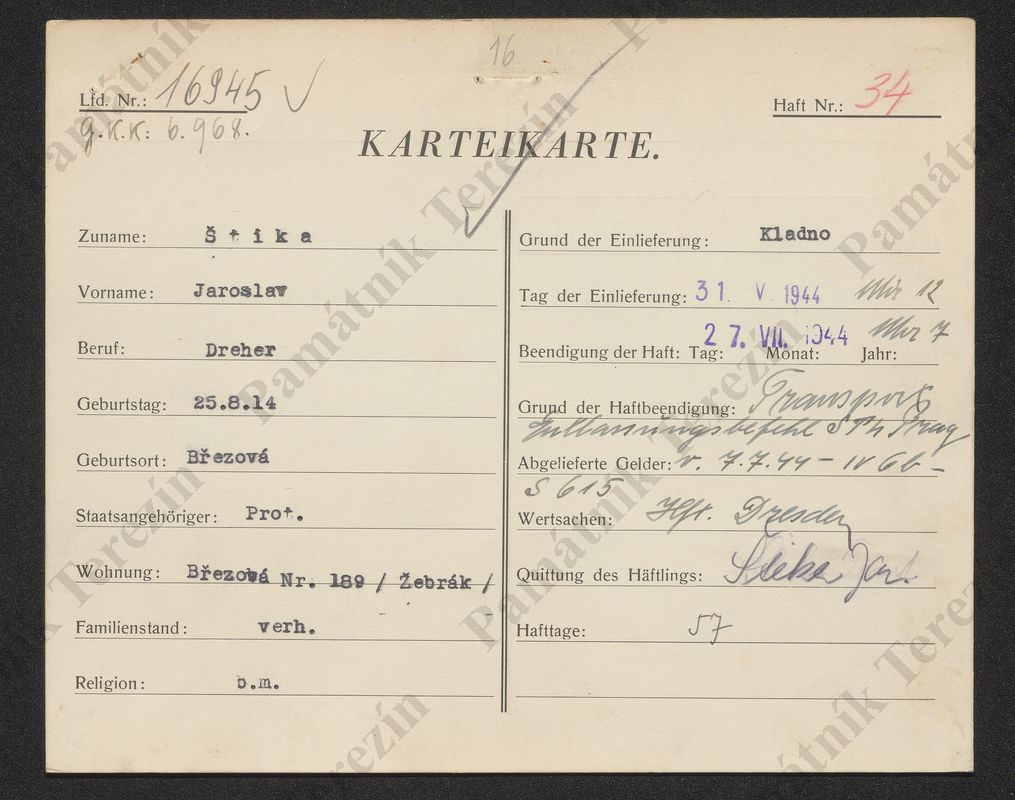 16
Lfd. Nr.: 16945
g.K.K: 6.968.
Haft Nr.: 34
KARTEIKARTE.
Zuname: Štika
Vorname: Jaroslav
Beruf: Dreher
Geburtstag: 25.8.14
Geburtsort: Březová
Staatsangehöriger: Prot.
Wohnung: Březová Nr. 189 / Žebrák /
Familienstand: verh.
Religion: b.m.
Grund der Einlieferung: Kladno
Tag der Einlieferung: 31. V. 1944 Uhr 12
27. VII. 1944 Uhr 7
Beendigung der Haft: Tag: Monat: Jahr:
Grund der Haftbendigung: Transport
Prag
Abgelieferte Gelder: v. 7.7.44 - IV 6b -
S 615
Wertsachen: Dresden
Quittung des Häftlings: Štika Jar.
Hafttage: 57
Památník Terezín